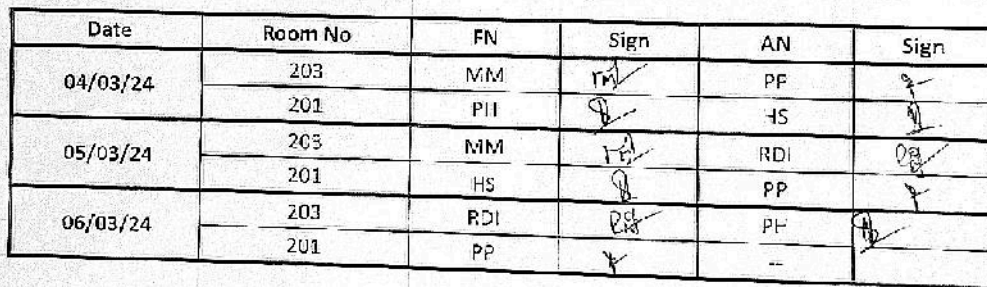 Date Room No FN Sign AN Sign
04/03/24 203 MM PP
201 PH HS
05/03/24 203 MM RDI
201 HS PP
06/03/24 203 RDI PH
201 PP --